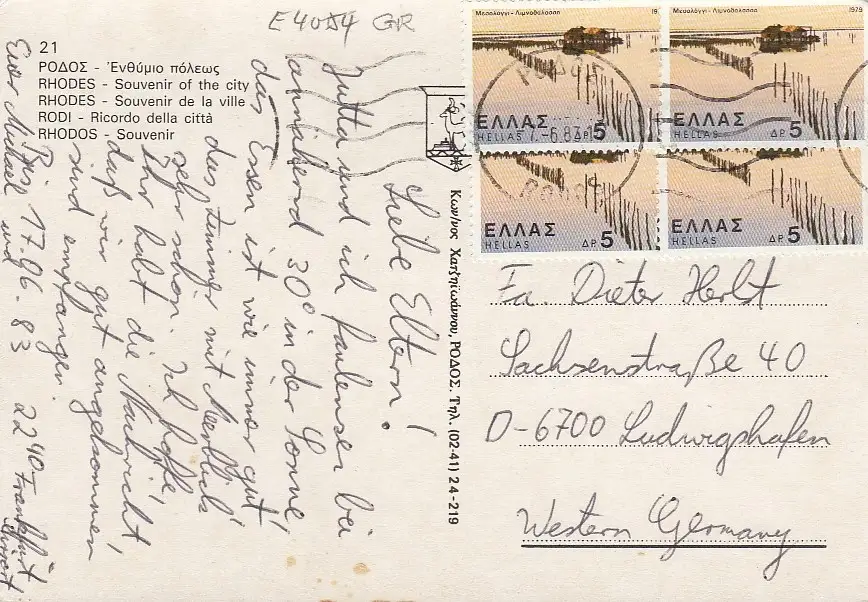 E4054 GR
21
ΡΟΔΟΣ - Ἐνθύμιο πόλεως
RHODES - Souvenir of the city
RHODES - Souvenir de la ville
RODI - Ricordo della città
RHODOS - Souvenir
Liebe Eltern!
Jutta und ich faulenzen bei
annähernd 30° in der Sonne,
das Essen ist wie immer gut,
das Zimmer mit Meerblick
sehr schön. Ich hoffe,
Ihr habt die Nachricht,
daß wir gut angekommen
sind empfangen.
17.06.83 22⁴⁰ Frankfurt
Euer Michael und
Κων/νος Χατζηϊωάννου, ΡΟΔΟΣ. Τηλ. (02-41) 24-219
Μεσολόγγι - Λιμνοθάλασσα
Μεσολόγγι - Λιμνοθάλασσα 1979
ΕΛΛΑΣ
HELLAS ΔΡ 5
ΕΛΛΑΣ
HELLAS ΔΡ 5
ΕΛΛΑΣ
HELLAS ΔΡ 5
ΕΛΛΑΣ
HELLAS ΔΡ 5
Fa. Dieter Herbst
Sachsenstraße 40
D-6700 Ludwigshafen
Western Germany